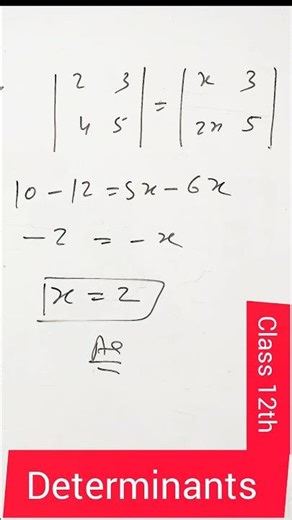 | 2 3 | = | x 3 |
| 4 5 | | 2x 5 |
10 - 12 = 5x - 6x
- 2 = - x
x = 2
Class 12th
Determinants